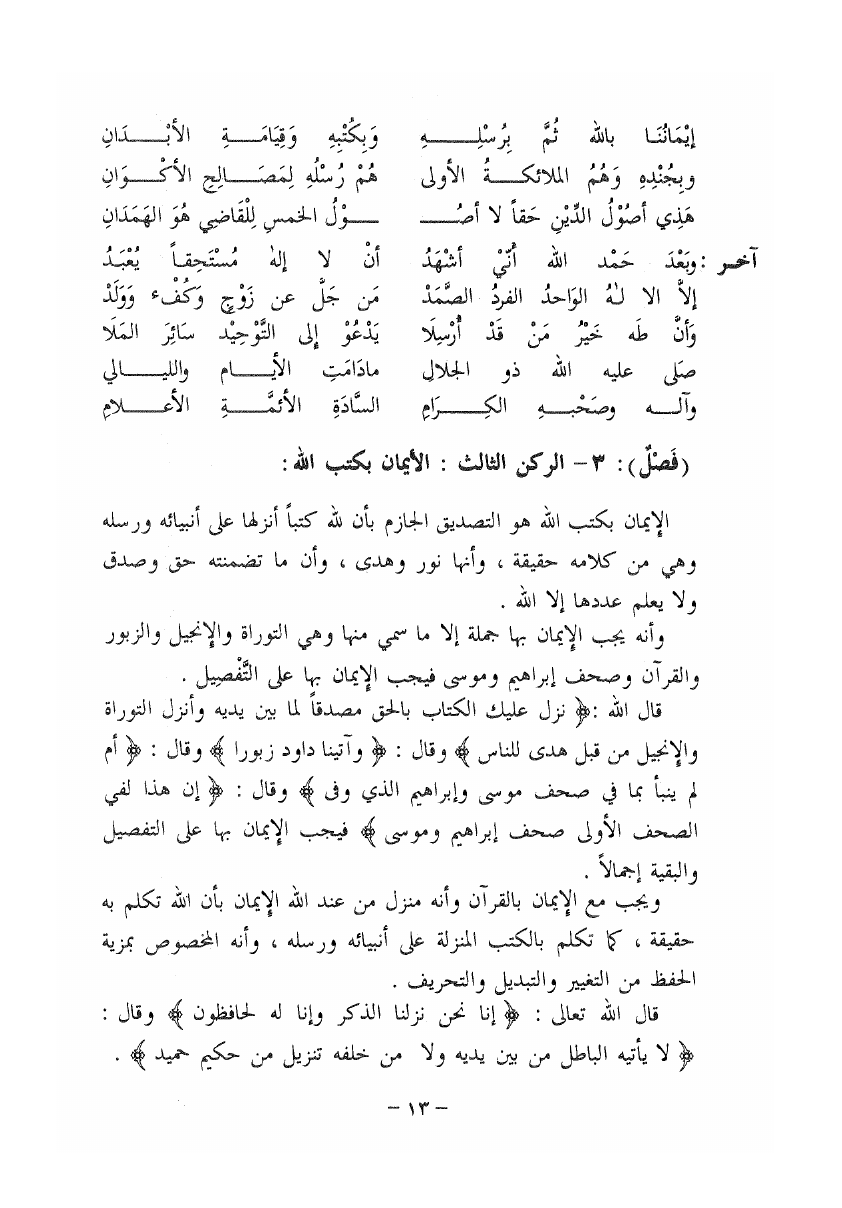 إيْمَانُنَا بالله ثُمَّ بِرُسْلِهِ وَبِكُتْبِهِ وَقِيَامَةِ الأبْدَانِ
وبِجُنْدِهِ وَهُمُ الملائكةُ الأولى هُمْ رُسْلُهِ لِمَصَالِحِ الأكْوَانِ
هَذِي أصُوْلُ الدِّيْنِ حَقاً لا أصُوْلُ الخمسِ لِلْقَاضِي هُوَ الهَمَدَانِ
آخر : وبَعْدَ حَمْد الله أَنّيْ أشْهَدُ أنْ لا إلهَ مُسْتَحِقاً يُعْبَدُ
إلاَّ الا لـٰهُ الوَاحدُ الفردُ الصَّمَدْ مَن جَلَّ عن زَوْجٍ وَكُفْءٍ وَوَلَدْ
وَأنَّ طه خَيْرُ مَنْ قَدْ أُرْسِلَا يَدْعُوْ إلى التَّوْحِيْد سَائِرَ المَلَا
صَلى عليه الله ذو الجلالِ مادَامَتِ الأيام والليالي
وآله وصَحْبهِ الكِرَامِ السَّادَةِ الأئمَّةِ الأعلامِ
(فَصْلٌ) : ٣ – الركن الثالث : الأيمان بكتب الله :
الإيمان بكتب الله هو التصديق الجازم بأن لله كتباً أنزلها على أنبيائه ورسله
وهي من كلامه حقيقة ، وأنها نور وهدى ، وأن ما تضمنته حق وصدق
ولا يعلم عددها إلا الله .
وأنه يجب الإيمان بها جملة إلا ما سمي منها وهي التوراة والإنجيل والزبور
والقرآن وصحف إبراهيم وموسى فيجب الإيمان بها على التَّفْصِيل .
قال الله : ﴿ نزل عليك الكتاب بالحق مصدقاً لما بين يديه وأنزل التوراة
والإنجيل من قبل هدى للناس ﴾ وقال : ﴿ وآتينا داود زبورا ﴾ وقال : ﴿ أم
لم ينبأ بما في صحف موسى وإبراهيم الذي وفى ﴾ وقال : ﴿ إن هذا لفي
الصحف الأولى صحف إبراهيم وموسى ﴾ فيجب الإيمان بها على التفصيل
والبقية إجمالاً .
ويجب مع الإيمان بالقرآن وأنه منزل من عند الله الإيمان بأن الله تكلم به
حقيقة ، كما تكلم بالكتب المنزلة على أنبيائه ورسله ، وأنه المخصوص بمزية
الحفظ من التغيير والتبديل والتحريف .
قال الله تعالى : ﴿ إنا نحن نزلنا الذكر وإنا له لحافظون ﴾ وقال :
﴿ لا يأتيه الباطل من بين يديه ولا من خلفه تنزيل من حكيم حميد ﴾ .
– ١٣ –